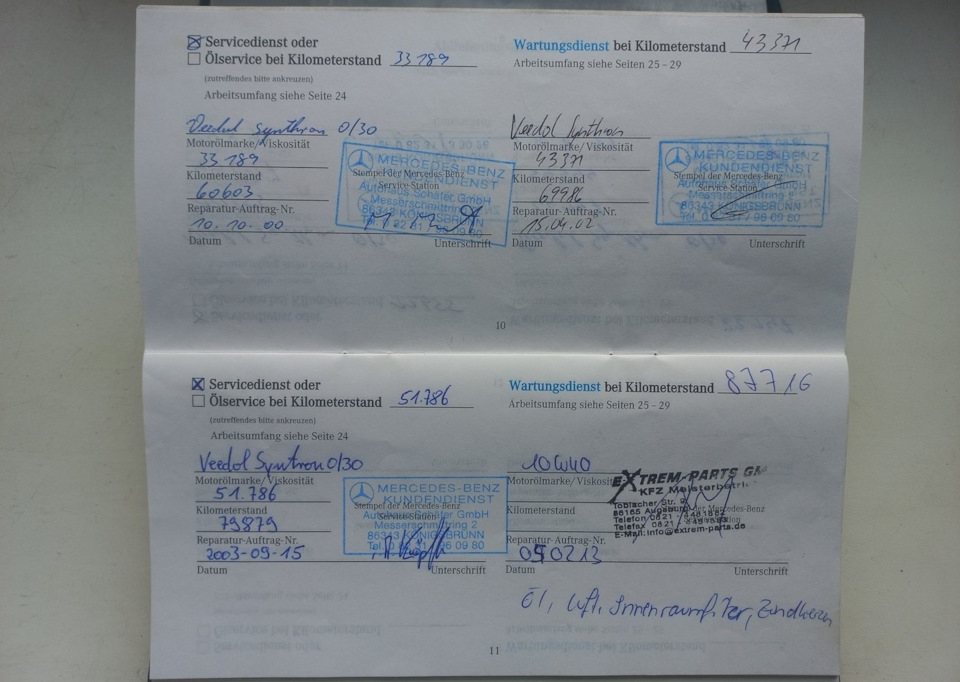 Servicedienst oder
Ölservice bei Kilometerstand 33 189
(zutreffendes bitte ankreuzen)
Arbeitsumfang siehe Seite 24
Veedol Synthron 0/30
Motorölmarke/Viskosität
33 189
Kilometerstand
60603
Reparatur-Auftrag-Nr.
10.10.00
Datum
Stempel der Mercedes-Benz
Service-Station
MERCEDES-BENZ
KUNDENDIENST
Autohaus Schäfer GmbH
Messerschmittring 2
86343 KÖNIGSBRUNN
Unterschrift
Wartungsdienst bei Kilometerstand 43371
Arbeitsumfang siehe Seiten 25 – 29
Veedol Synthron
Motorölmarke/Viskosität
43371
Kilometerstand
69986
Reparatur-Auftrag-Nr.
15.04.02
Datum
Stempel der Mercedes-Benz
Service-Station
MERCEDES-BENZ
KUNDENDIENST
Autohaus Schäfer GmbH
86343 KÖNIGSBRUNN
Unterschrift
10
Servicedienst oder
Ölservice bei Kilometerstand 51.786
(zutreffendes bitte ankreuzen)
Arbeitsumfang siehe Seite 24
Veedol Syntron 0/30
Motorölmarke/Viskosität
51.786
Kilometerstand
79879
Reparatur-Auftrag-Nr.
2003-09-15
Datum
Stempel der Mercedes-Benz
Service-Station
MERCEDES-BENZ
KUNDENDIENST
Autohaus Schäfer GmbH
Messerschmittring 2
86343 KÖNIGSBRUNN
Unterschrift
Wartungsdienst bei Kilometerstand 87716
Arbeitsumfang siehe Seiten 25 – 29
10W40
Motorölmarke/Viskosität
Kilometerstand
Reparatur-Auftrag-Nr.
Datum
EXTREM-PARTS
KFZ Meisterbetrieb
Toblacher Str.
86165 Augsburg
Telefon 0821
Telefax 0821
E-Mail: info@extrem-parts.de
der Mercedes-Benz
Unterschrift
Öl, Luft, Innenraumfilter, Zündkerzen
11